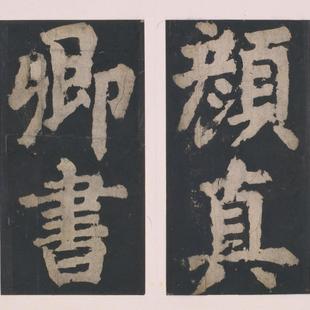 顏真
卿書